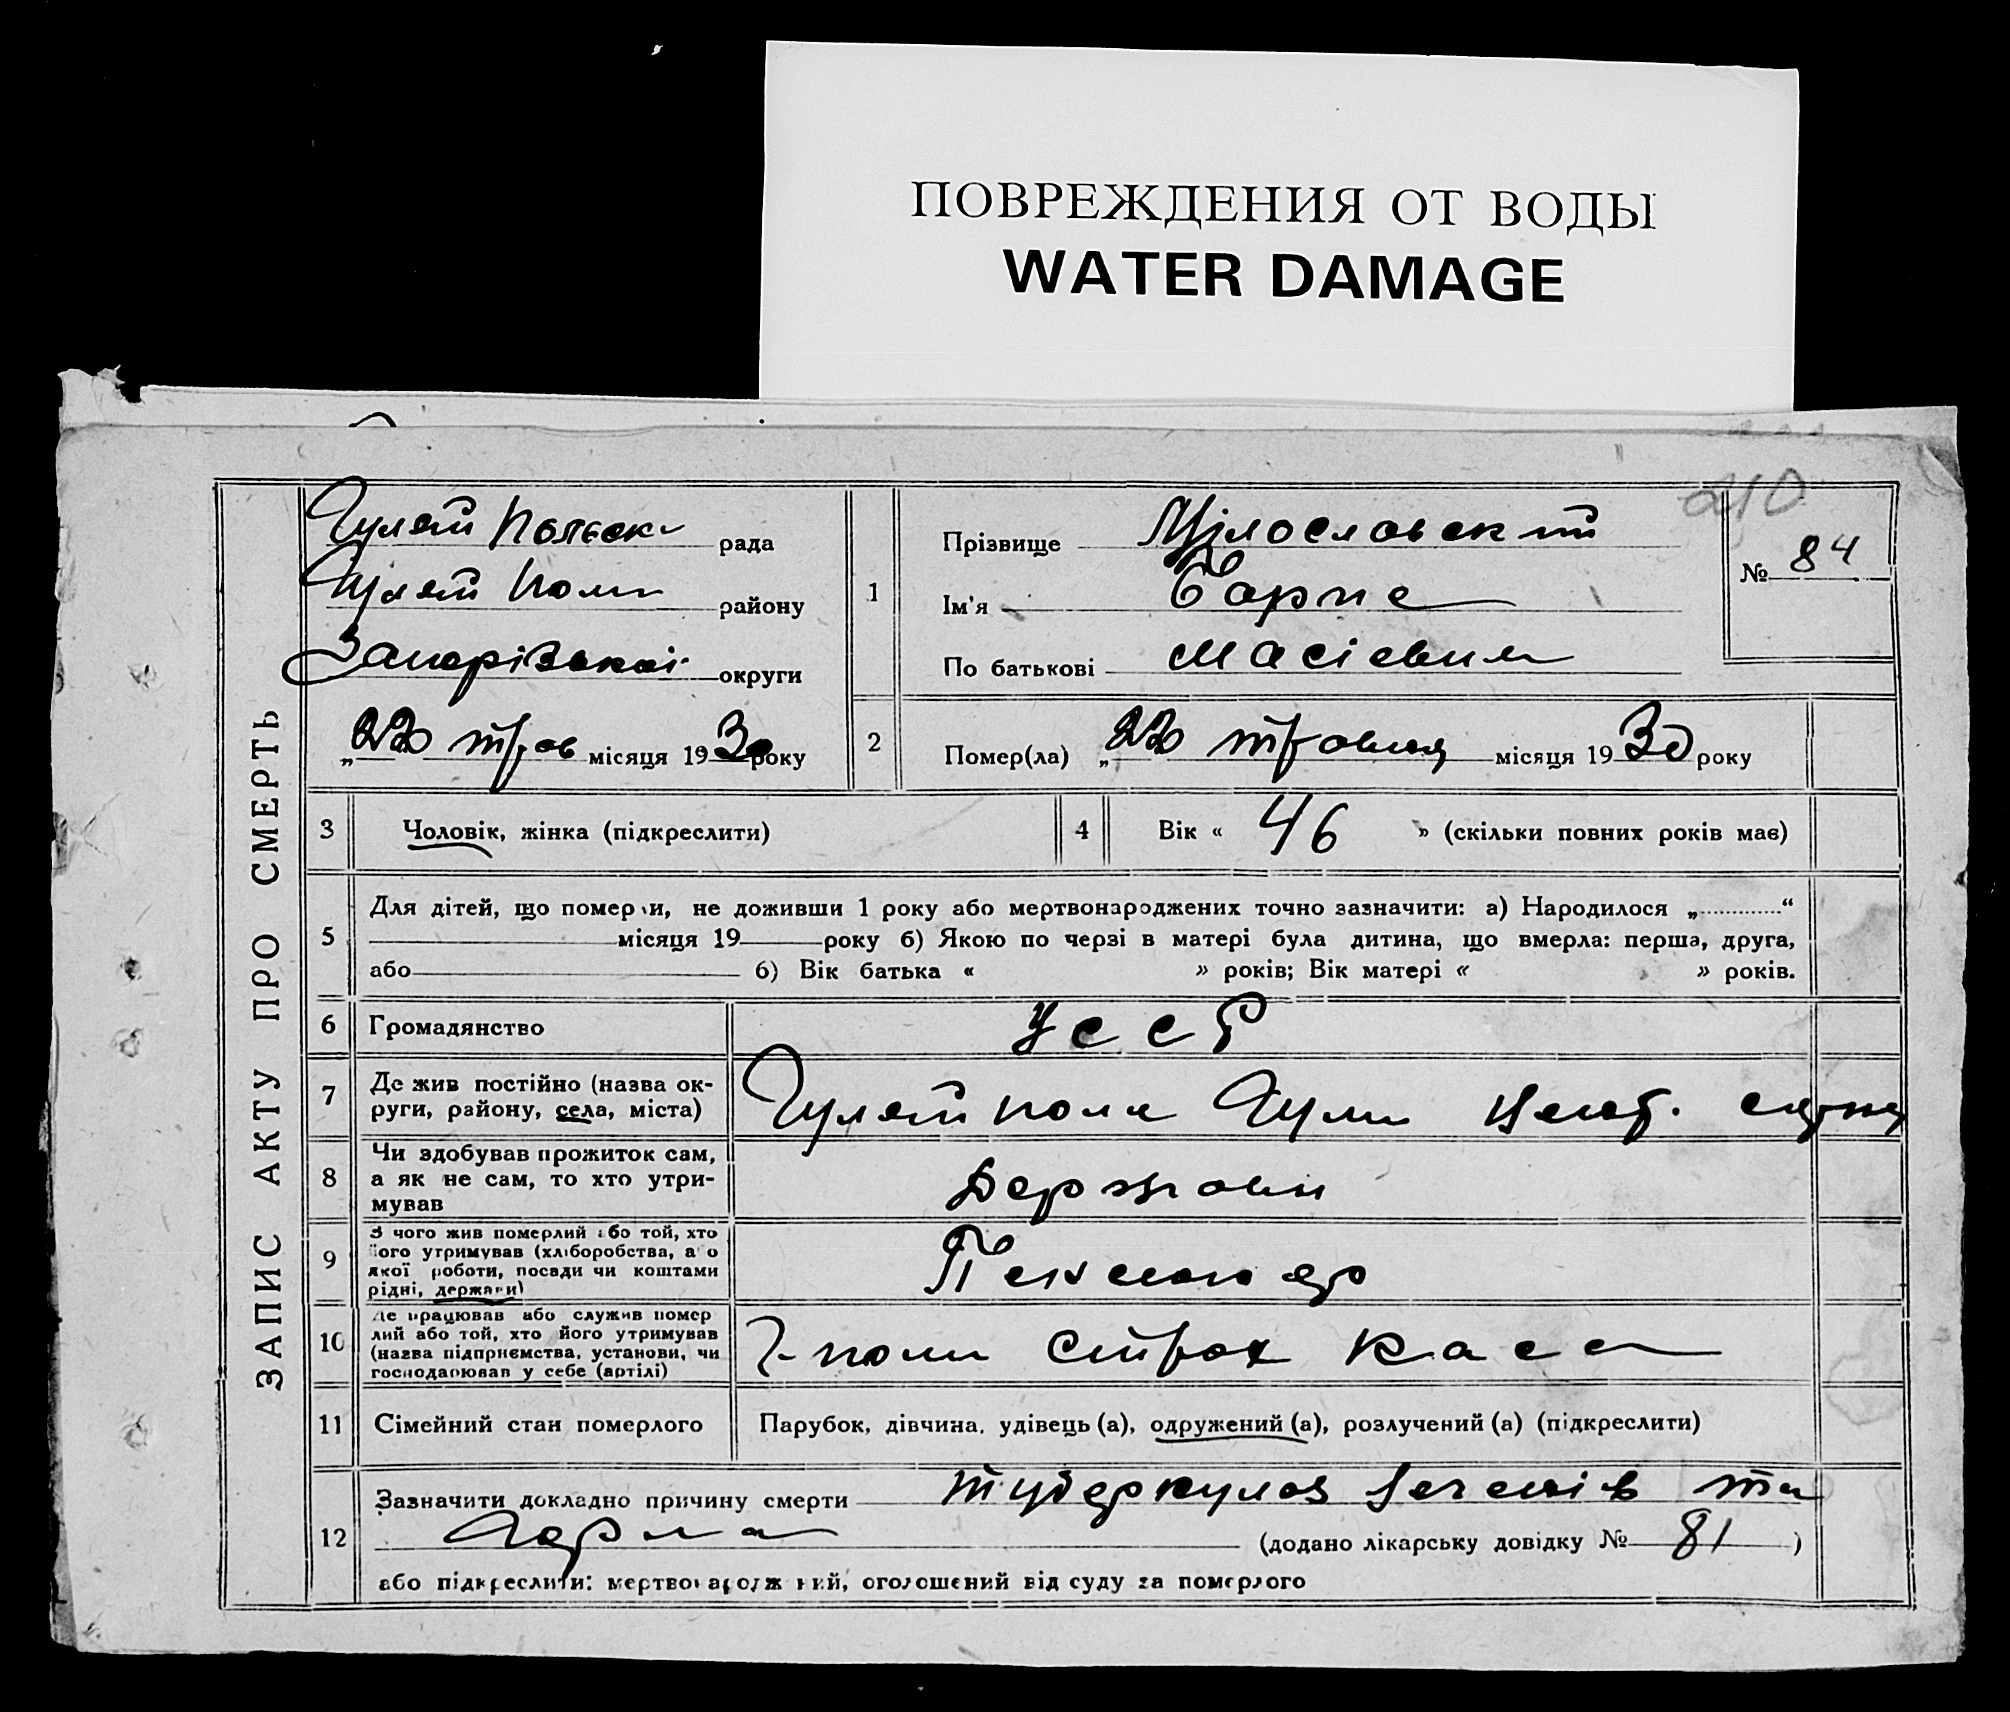 ПОВРЕЖДЕНИЯ ОТ ВОДЫ
WATER DAMAGE
210
ЗАПИС АКТУ ПРО СМЕРТЬ
Гуляй Польськ рада
Гуляй Поля району
Запорізької округи
„22" трав місяця 1930 року
1
Прізвище Мілославский
Ім'я
По батькові
№ 84
2
Помер(ла) „22" травня місяця 1930 року
3 Чоловік, жінка (підкреслити)
4 Вік « 46 » (скільки повних років має)
5 Для дітей, що померли, не доживши 1 року або мертвонароджених точно зазначити: а) Народилося „............“
місяця 19 року б) Якою по черзі в матері була дитина, що вмерла: перша, друга,
або б) Вік батька « » років; Вік матері « » років.
6 Громадянство УССР
7 Де жив постійно (назва ок-
руги, району, села, міста)
Гуляйполя Гуля
8 Чи здобував прожиток сам,
а як не сам, то хто утри-
мував
9 З чого жив померлий або той, хто
його утримував (хліборобства, або
якої роботи, посади чи коштами
рідні, держави)
Пенсионер
10 Де працював або служив помер
лий або той, хто його утримував
(назва підприємства, установи, чи
господарював у себе (артілі)
Г-поля Страх касса
11 Сімейний стан померлого
Парубок, дівчина, удівець (а), одружений (а), розлучений (а) (підкреслити)
12 Зазначити докладно причину смерти туберкулоз легенів та
горла (додано лікарську довідку № 81 )
або підкреслити: мертвонароджений, оголошений від суду за померлого